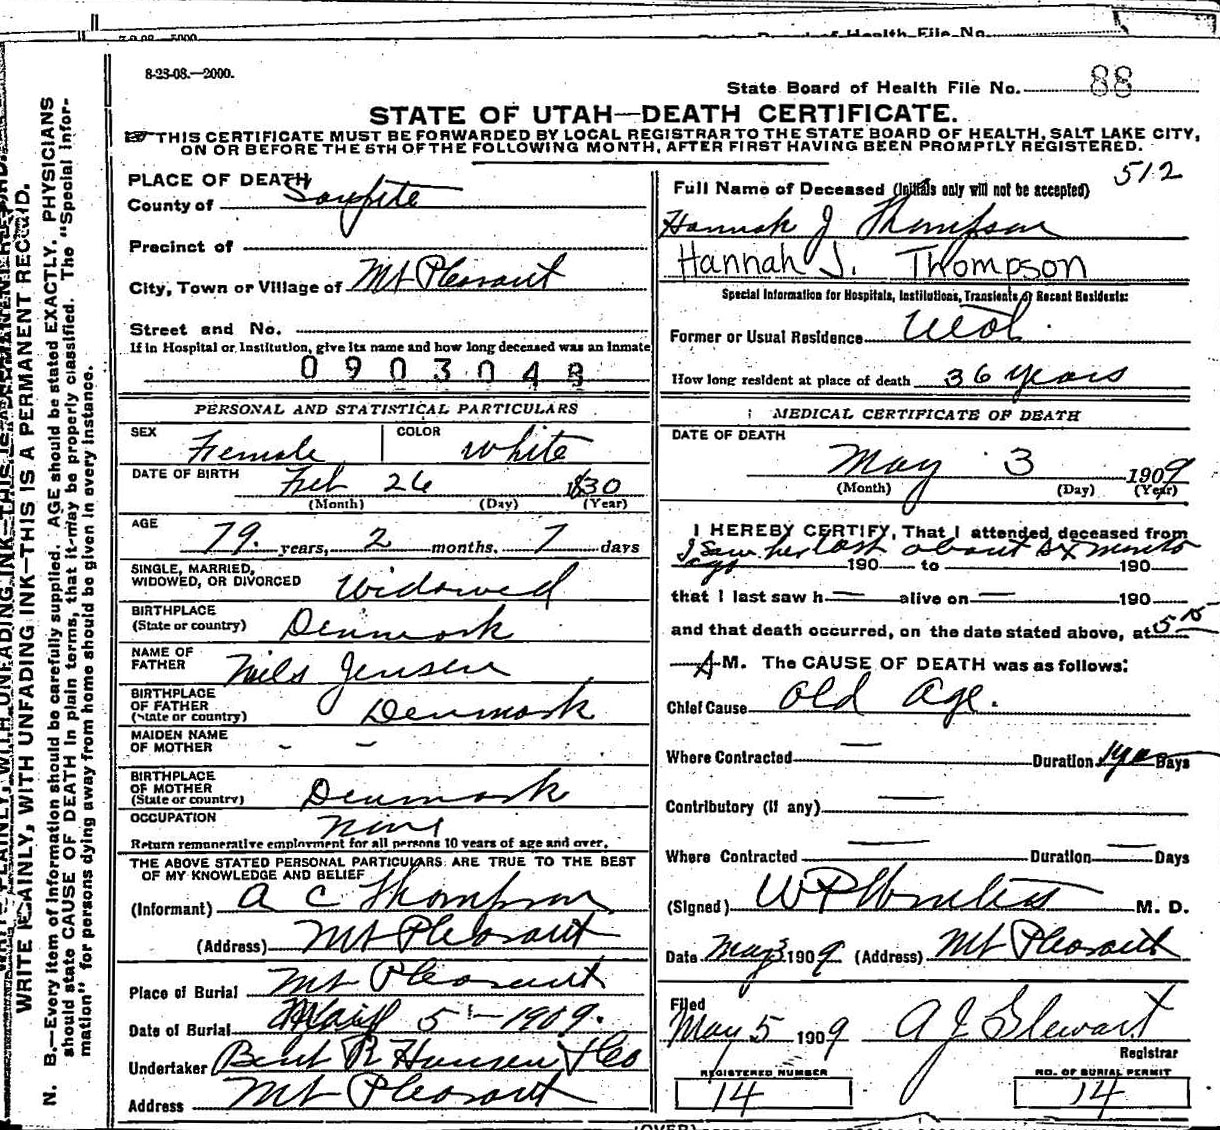 8-23-08.—2000.
State Board of Health File No. 88
STATE OF UTAH—DEATH CERTIFICATE.
THIS CERTIFICATE MUST BE FORWARDED BY LOCAL REGISTRAR TO THE STATE BOARD OF HEALTH, SALT LAKE CITY,
ON OR BEFORE THE 5TH OF THE FOLLOWING MONTH, AFTER FIRST HAVING BEEN PROMPTLY REGISTERED.
WRITE PLAINLY, WITH UNFADING INK—THIS IS A PERMANENT RECORD.
N. B.—Every item of information should be carefully supplied. AGE should be stated EXACTLY. PHYSICIANS
should state CAUSE OF DEATH in plain terms, that it may be properly classified. The "Special Infor-
mation" for persons dying away from home should be given in every instance.
PLACE OF DEATH
County of Sanpete
Precinct of
City, Town or Village of Mt Pleasant
Street and No.
If in Hospital or Institution, give its name and how long deceased was an inmate
0903048
PERSONAL AND STATISTICAL PARTICULARS
SEX Female COLOR White
DATE OF BIRTH Feb 26 1830
(Month) (Day) (Year)
AGE 79 years, 2 months, 7 days
SINGLE, MARRIED,
WIDOWED, OR DIVORCED Widowed
BIRTHPLACE
(State or country) Denmark
NAME OF
FATHER Niels Jensen
BIRTHPLACE
OF FATHER
(State or country) Denmark
MAIDEN NAME
OF MOTHER - -
BIRTHPLACE
OF MOTHER
(State or country) Denmark
OCCUPATION None
Return remunerative employment for all persons 10 years of age and over.
THE ABOVE STATED PERSONAL PARTICULARS ARE TRUE TO THE BEST
OF MY KNOWLEDGE AND BELIEF
(Informant) A C Thompson
(Address) Mt Pleasant
Place of Burial Mt Pleasant
Date of Burial May 5 - 1909.
Undertaker Bent R Hansen & Co
Address Mt Pleasant
512
Full Name of Deceased (Initials only will not be accepted)
Hannah J Thompson
Hannah J. Thompson
Special Information for Hospitals, Institutions, Transients or Recent Residents:
Former or Usual Residence Utah.
How long resident at place of death 36 years
MEDICAL CERTIFICATE OF DEATH
DATE OF DEATH
May 3 1909
(Month) (Day) (Year)
I HEREBY CERTIFY, That I attended deceased from
I saw her last about six months
ago 190 to 190
that I last saw h — alive on — 190
and that death occurred, on the date stated above, at 5 15
A M. The CAUSE OF DEATH was as follows:
Chief Cause Old age.
Where Contracted — Duration Days
Contributory (if any) —
Where Contracted — Duration — Days
(Signed) M. D.
Date May 3 1909 (Address) Mt Pleasant
Filed
May 5 1909 A J Stewart
Registrar
REGISTERED NUMBER NO. OF BURIAL PERMIT
14 14
(OVER)